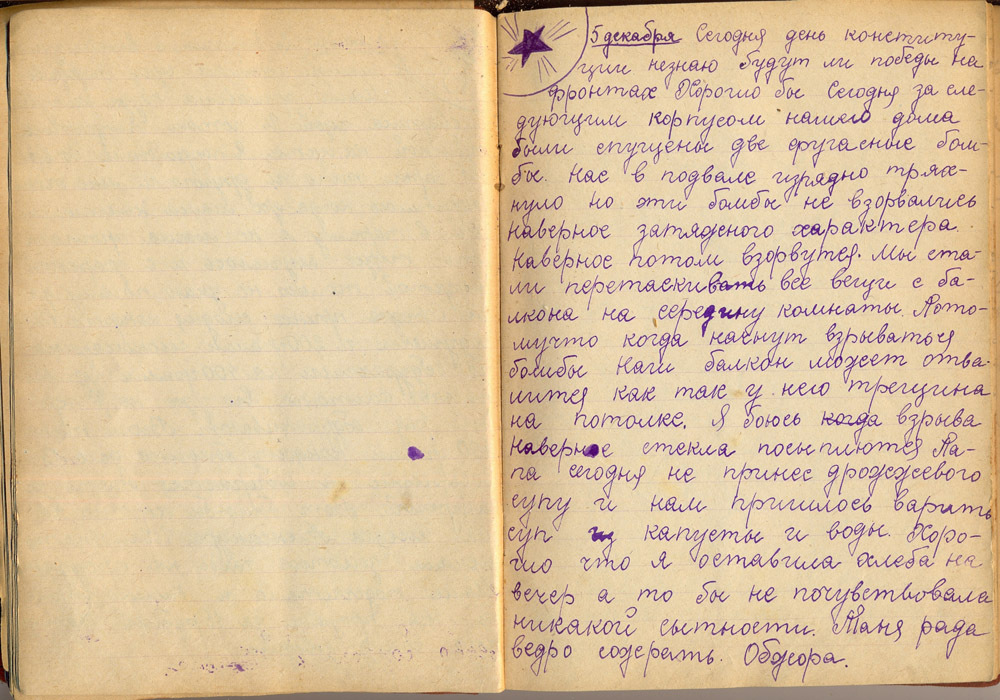 5 декабря Сегодня день конститу-
ции незнаю будут ли победы на
фронтах Хорошо бы Сегодня за сле-
дующим корпусом нашего дома
были спущены две фугасные бом-
бы. Нас в подвале изрядно трях-
нуло но эти бомбы не взорвались
наверное затяжного характера.
Наверное потом взорвутся. Мы ста-
ли перетаскивать все вещи с ба-
лкона на середину комнаты. Пото-
мучто когда начнут взрываться
бомбы наш балкон может отва-
лится как так у него трещина
на потолке. Я боюсь когда взрыва
наверное стекла посыплются Па-
па сегодня не принес дрожжевого
супу и нам пришлось варить
суп из капусты и воды. Хоро-
шо что я оставила хлеба на
вечер а то бы не почувствовала
никакой сытности. Таня рада
ведро сожрать. Обжора.